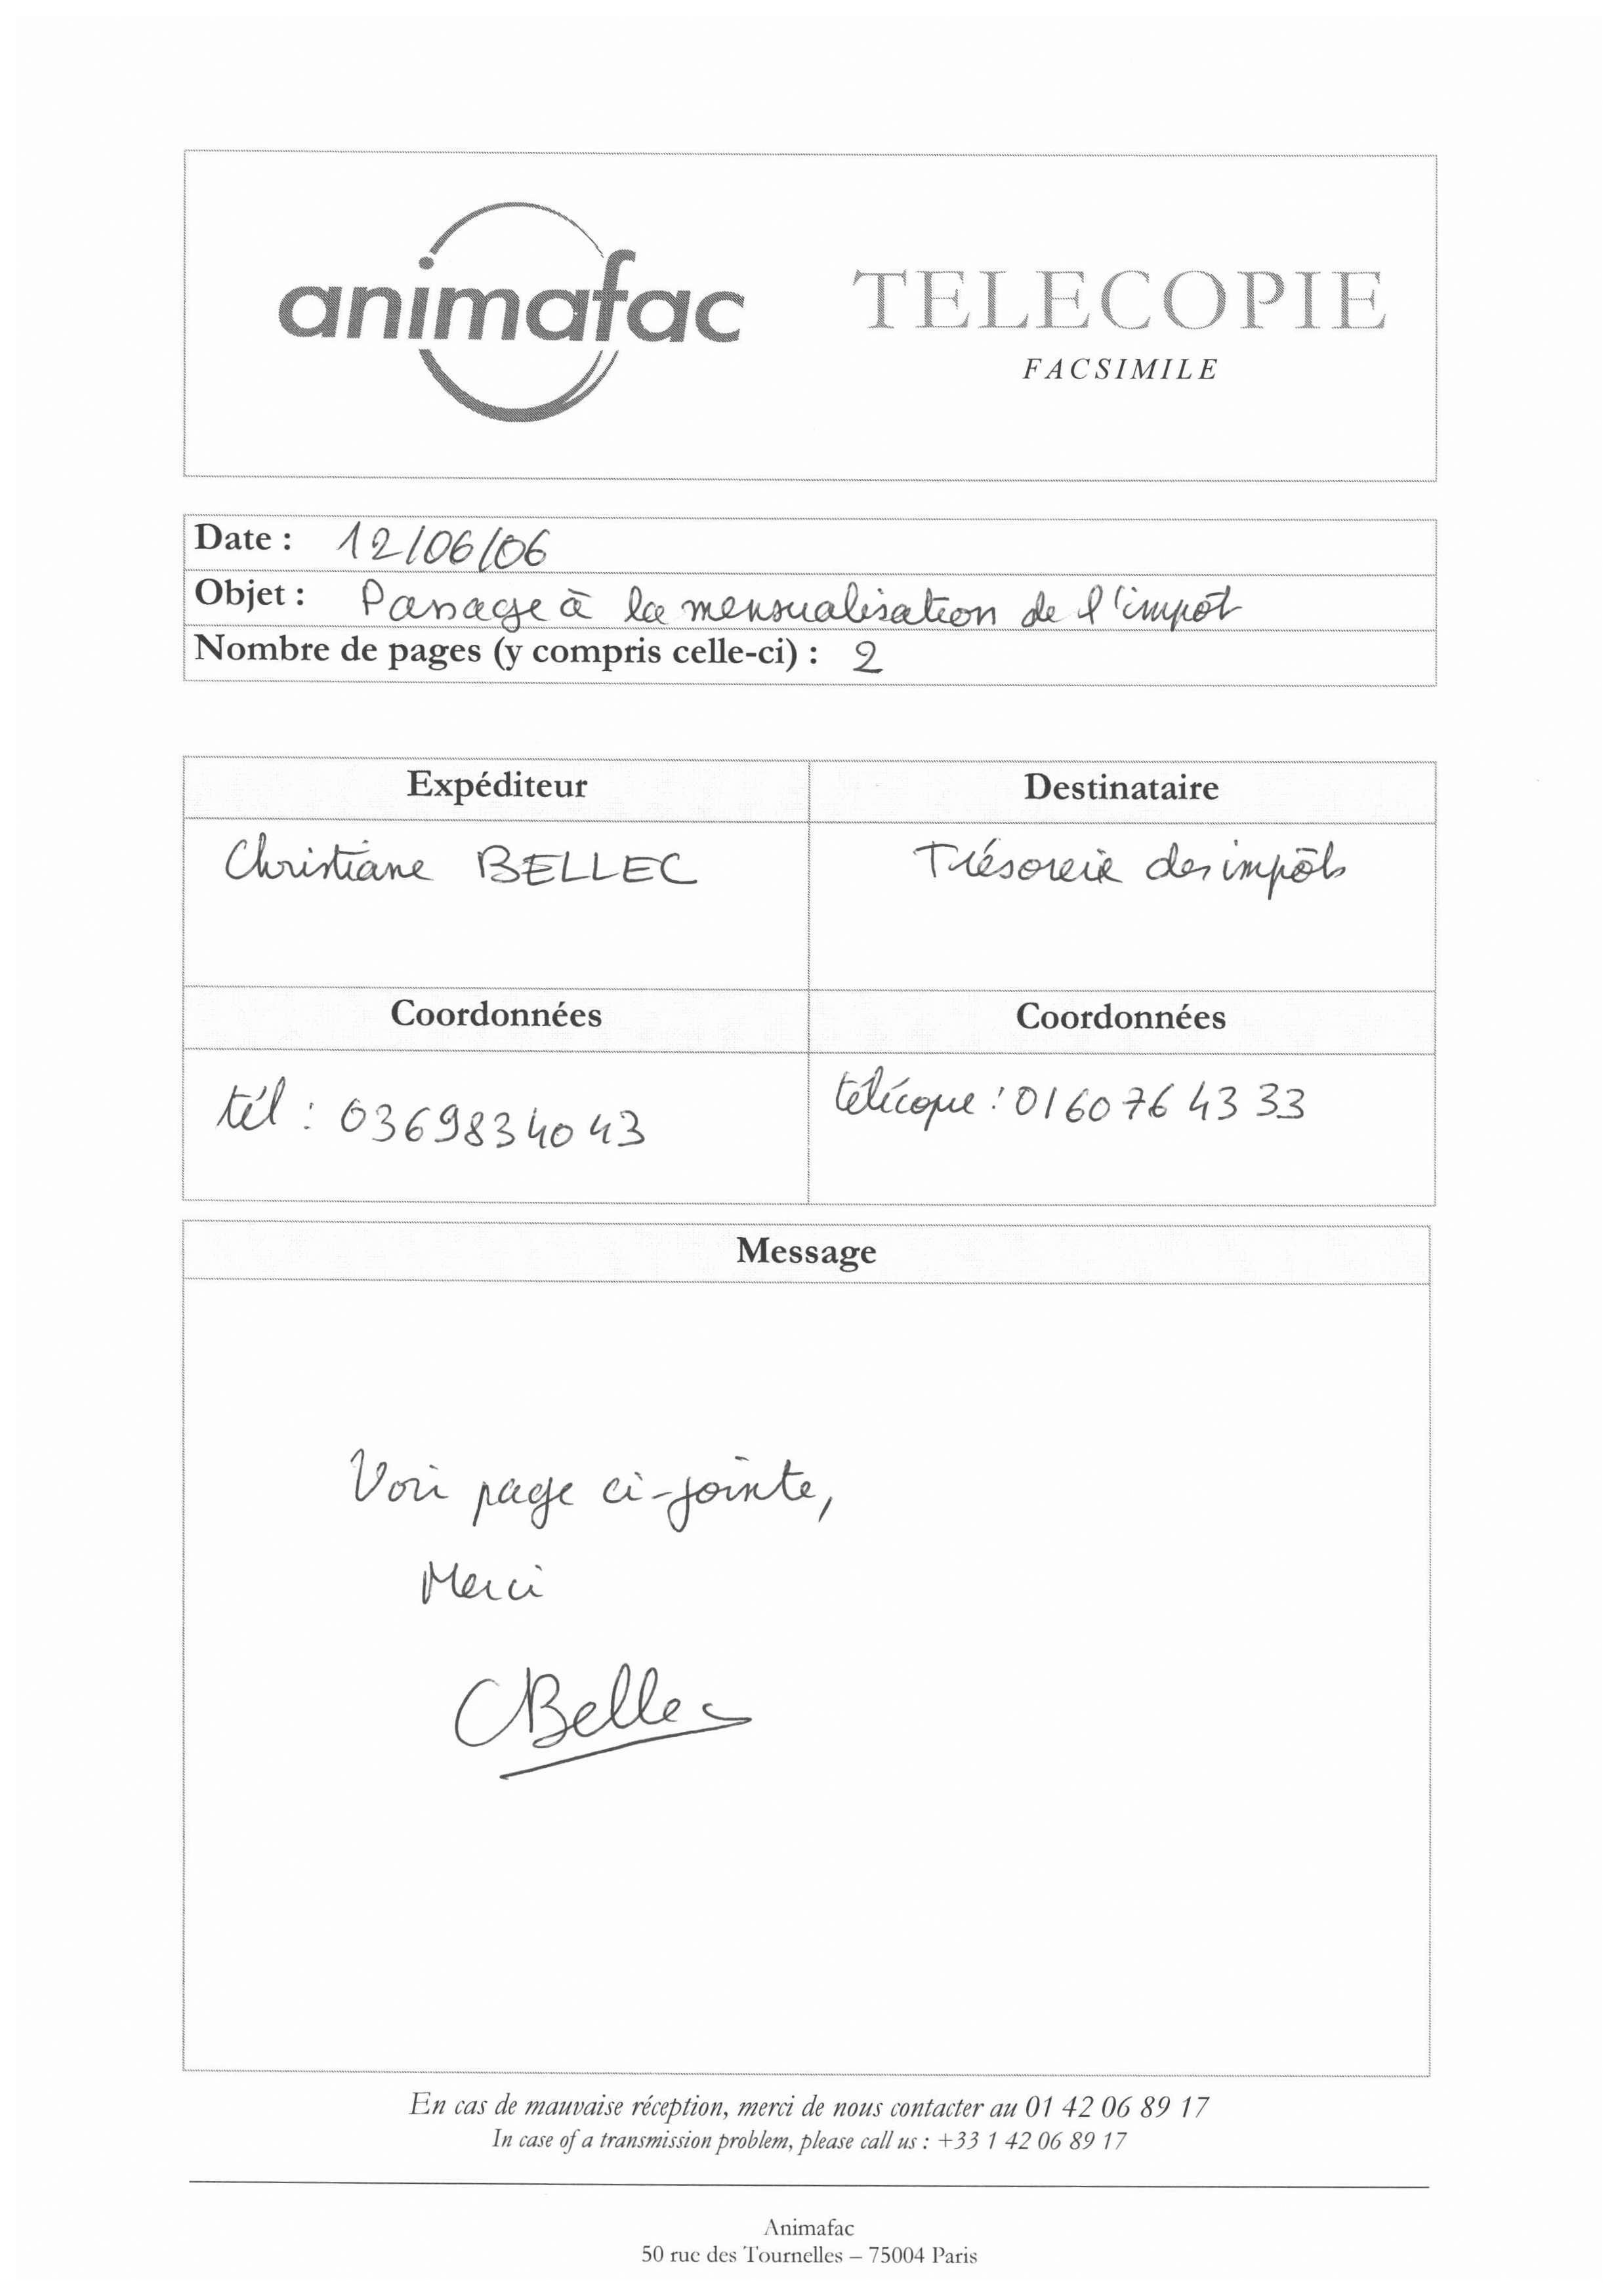 animafac
TELECOPIE
FACSIMILE
Date : 12/06/06
Objet : Passage à la mensualisation de l'impôt
Nombre de pages (y compris celle-ci) : 2
Expéditeur
Destinataire
Christiane BELLEC
Trésorerie des impôts
Coordonnées
Coordonnées
tél : 0369834043
télécopie : 01 60 76 43 33
Message
Voir page ci-jointe,
Merci
CBellec
En cas de mauvaise réception, merci de nous contacter au 01 42 06 89 17
In case of a transmission problem, please call us : +33 1 42 06 89 17
Animafac
50 rue des Tournelles – 75004 Paris